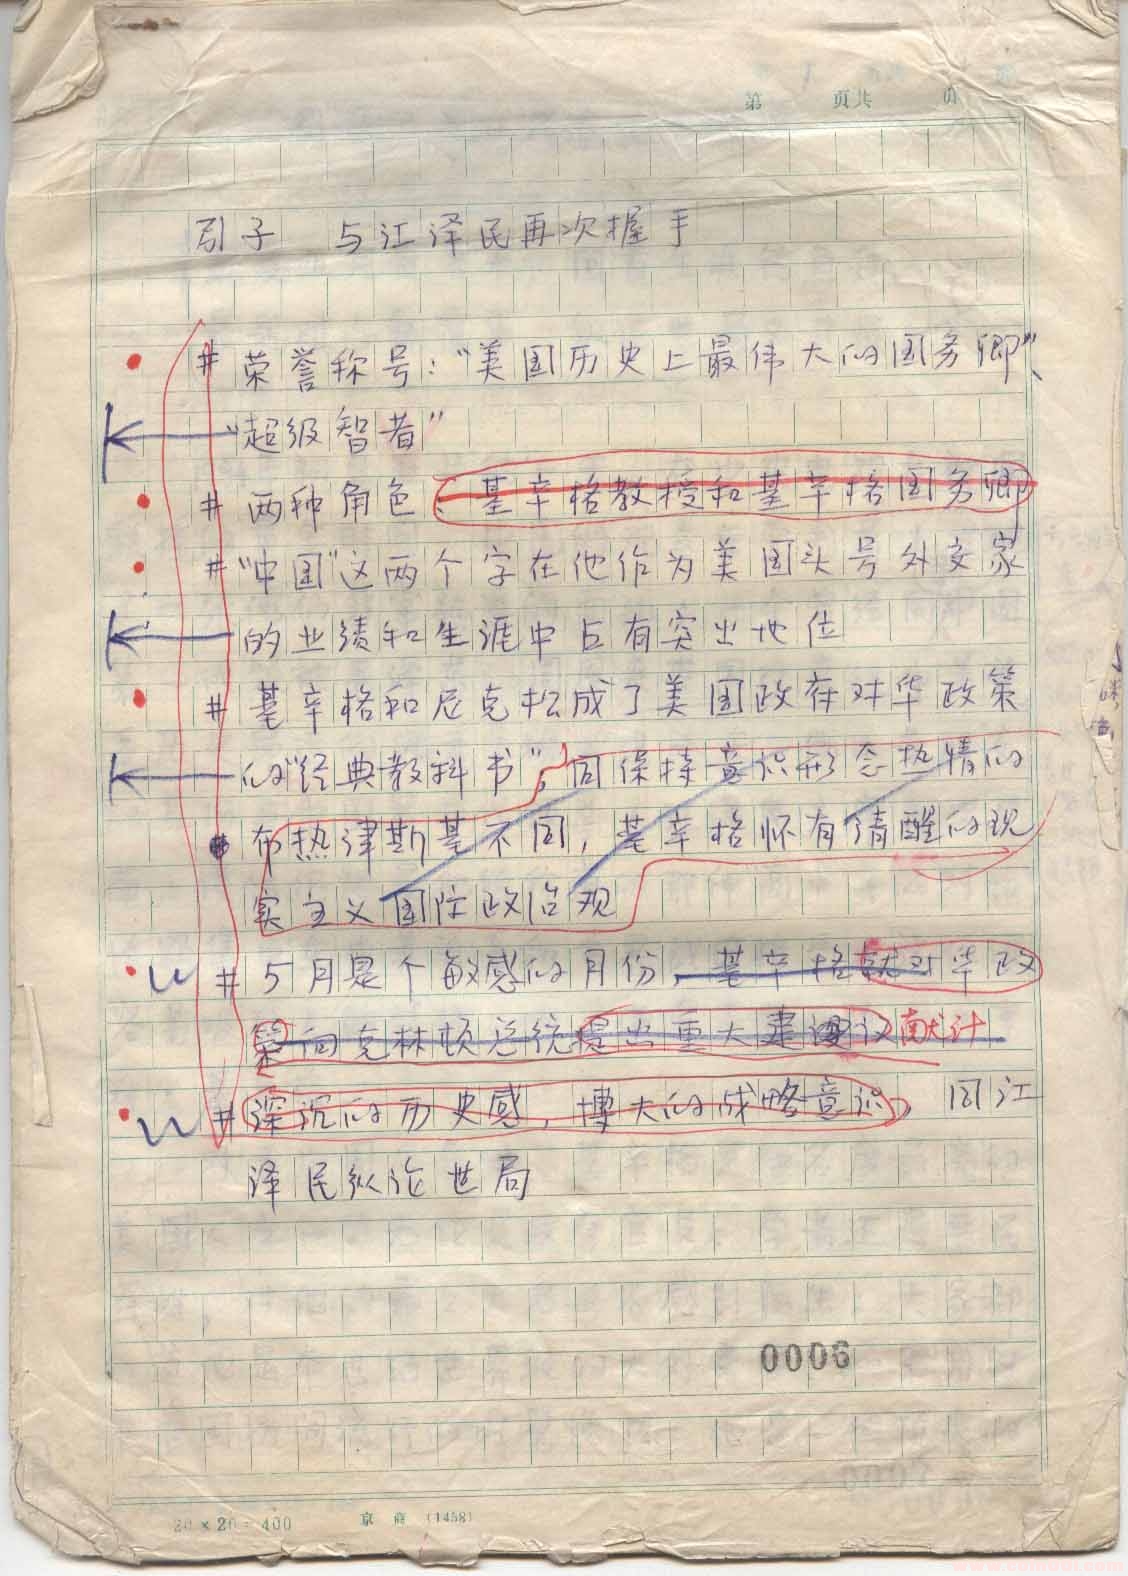 第　页共　页
引子　与江泽民再次握手
# 荣誉称号：“美国历史上最伟大的国务卿”、
“超级智者”
# 两种角色：基辛格教授和基辛格国务卿
# “中国”这两个字在他作为美国头号外交家
的业绩和生涯中占有突出地位
# 基辛格和尼克松成了美国政府对华政策
的“经典教科书”，同保持意识形态热情的
布热津斯基不同，基辛格怀有清醒的现
实主义国际政治观
# 5月是个敏感的月份，基辛格就对华政
策向克林顿总统提出重大建议 献计
# 深沉的历史感，博大的战略意识，同江
泽民纵论世局
0006
20×20=400　京商（1458）